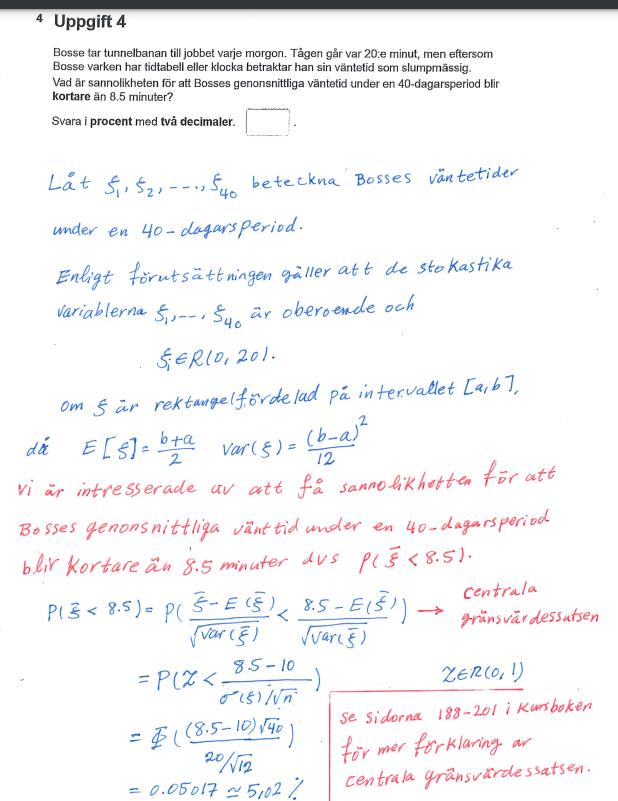 4 Uppgift 4
Bosse tar tunnelbanan till jobbet varje morgon. Tågen går var 20:e minut, men eftersom
Bosse varken har tidtabell eller klocka betraktar han sin väntetid som slumpmässig.
Vad är sannolikheten för att Bosses genonsnittliga väntetid under en 40-dagarsperiod blir
kortare än 8.5 minuter?
Svara i procent med två decimaler.
Låt ξ₁, ξ₂, ---., ξ₄₀ beteckna Bosses väntetider
under en 40-dagarsperiod.
Enligt förutsättningen gäller att de stokastika
variablerna ξ₁,--., ξ₄₀ är oberoende och
ξᵢ∈R(0, 20).
om ξ är rektangelfördelad på intervallet [a,b],
då E[ξ] = (b+a)/2 Var(ξ) = (b-a)²/12
Vi är intresserade av att få sannolikheten för att
Bosses genonsnittliga vänttid under en 40-dagarsperiod
blir kortare än 8.5 minuter dvs P(ξ̄ < 8.5).
P(ξ̄ < 8.5) = P( (ξ̄ - E(ξ̄))/√Var(ξ̄) < (8.5 - E(ξ̄))/√Var(ξ̄) ) → centrala
gränsvärdessatsen
= P(Z < (8.5-10)/(σ(ξ)/√n) ) Z∈R(0,1)
= Φ( (8.5-10)√40 / (20/√12) )
= 0.05017 ≃ 5,02 %
Se sidorna 188-201 i kursboken
för mer förklaring av
centrala gränsvärdessatsen.